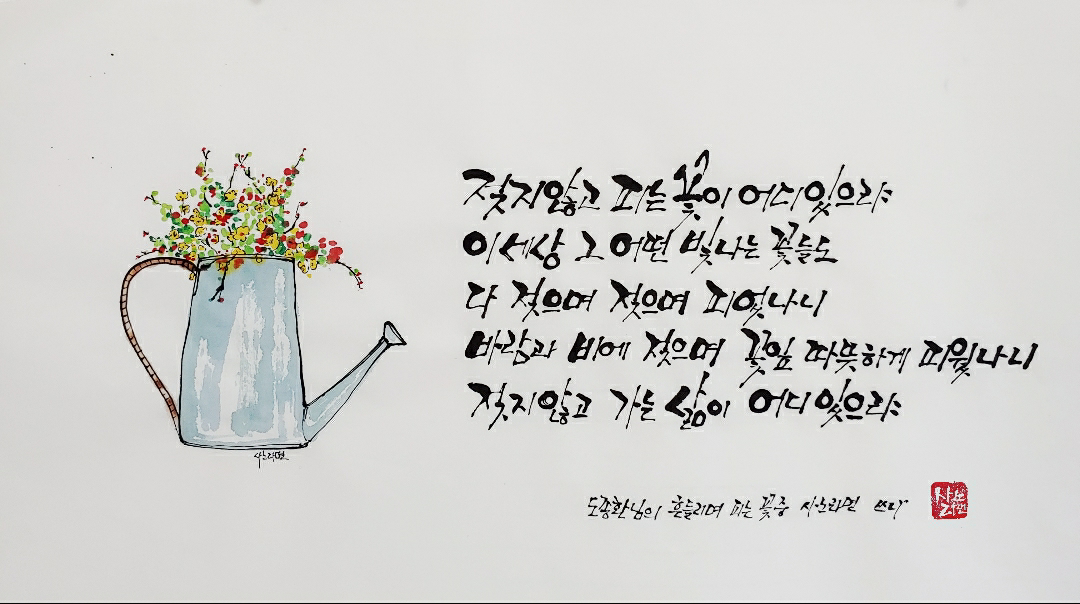 젖지않고 피는 꽃이 어디있으랴
이 세상 그 어떤 빛나는 꽃들도
다 젖으며 젖으며 피었나니
바람과 비에 젖으며 꽃잎 따뜻하게 피웠나니
젖지않고 가는 삶이 어디있으랴
도종환님의 흔들리며 피는 꽃중 시노라면 쓰다